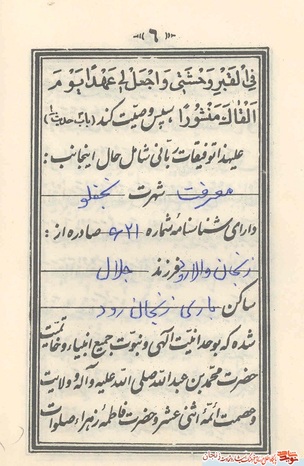 «۶»
فِی الْقَبْرِ وَحْشَتی وَاجْعَلْ لی عَهْدًا یَوْمَ
اَلْقاكَ مَنْشُورًا، سپس وصیّت کند
علیهذا توفیقات ربّانی شامل حال اینجانب :
معرفت شهرت نجفلو
دارای شناسنامهٔ شماره ۶۲۱ صادره از :
زنجان والارود فرزند جلال
ساکن باری زنجان رود
شده که بوحدانیّت الهی و نبوّت جمیع انبیاء و خاتمیّت
حضرت محمّد بن عبداللّه صلی اللّه علیه وآله و ولایت
وعصمت ائمّهٔ اثنی عشر و حضرت فاطمه زهرا صلوات